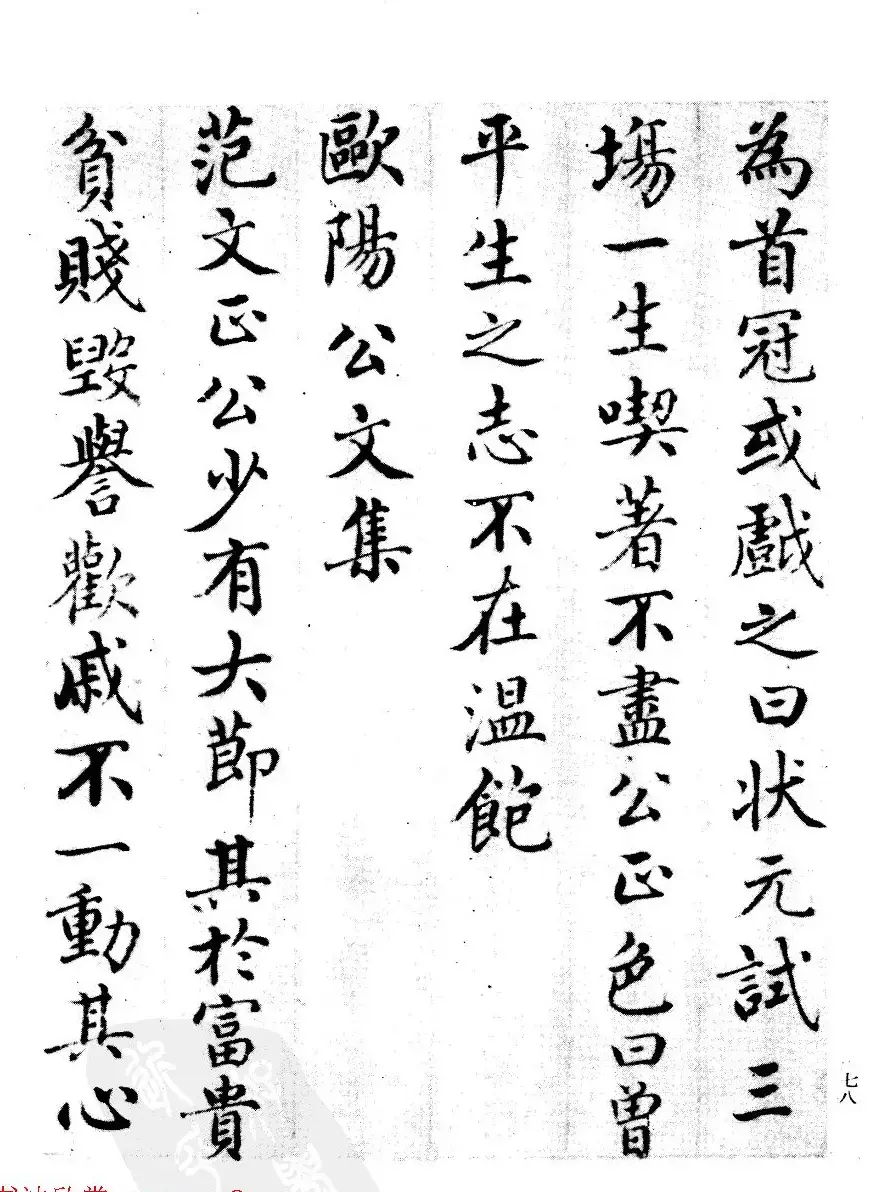 為首冠或戲之曰状元試三
塲一生喫著不盡公正色曰曽
平生之志不在温飽
歐陽公文集
范文正公少有大節其於富貴
貧賤毀譽歡戚不一動其心
七八